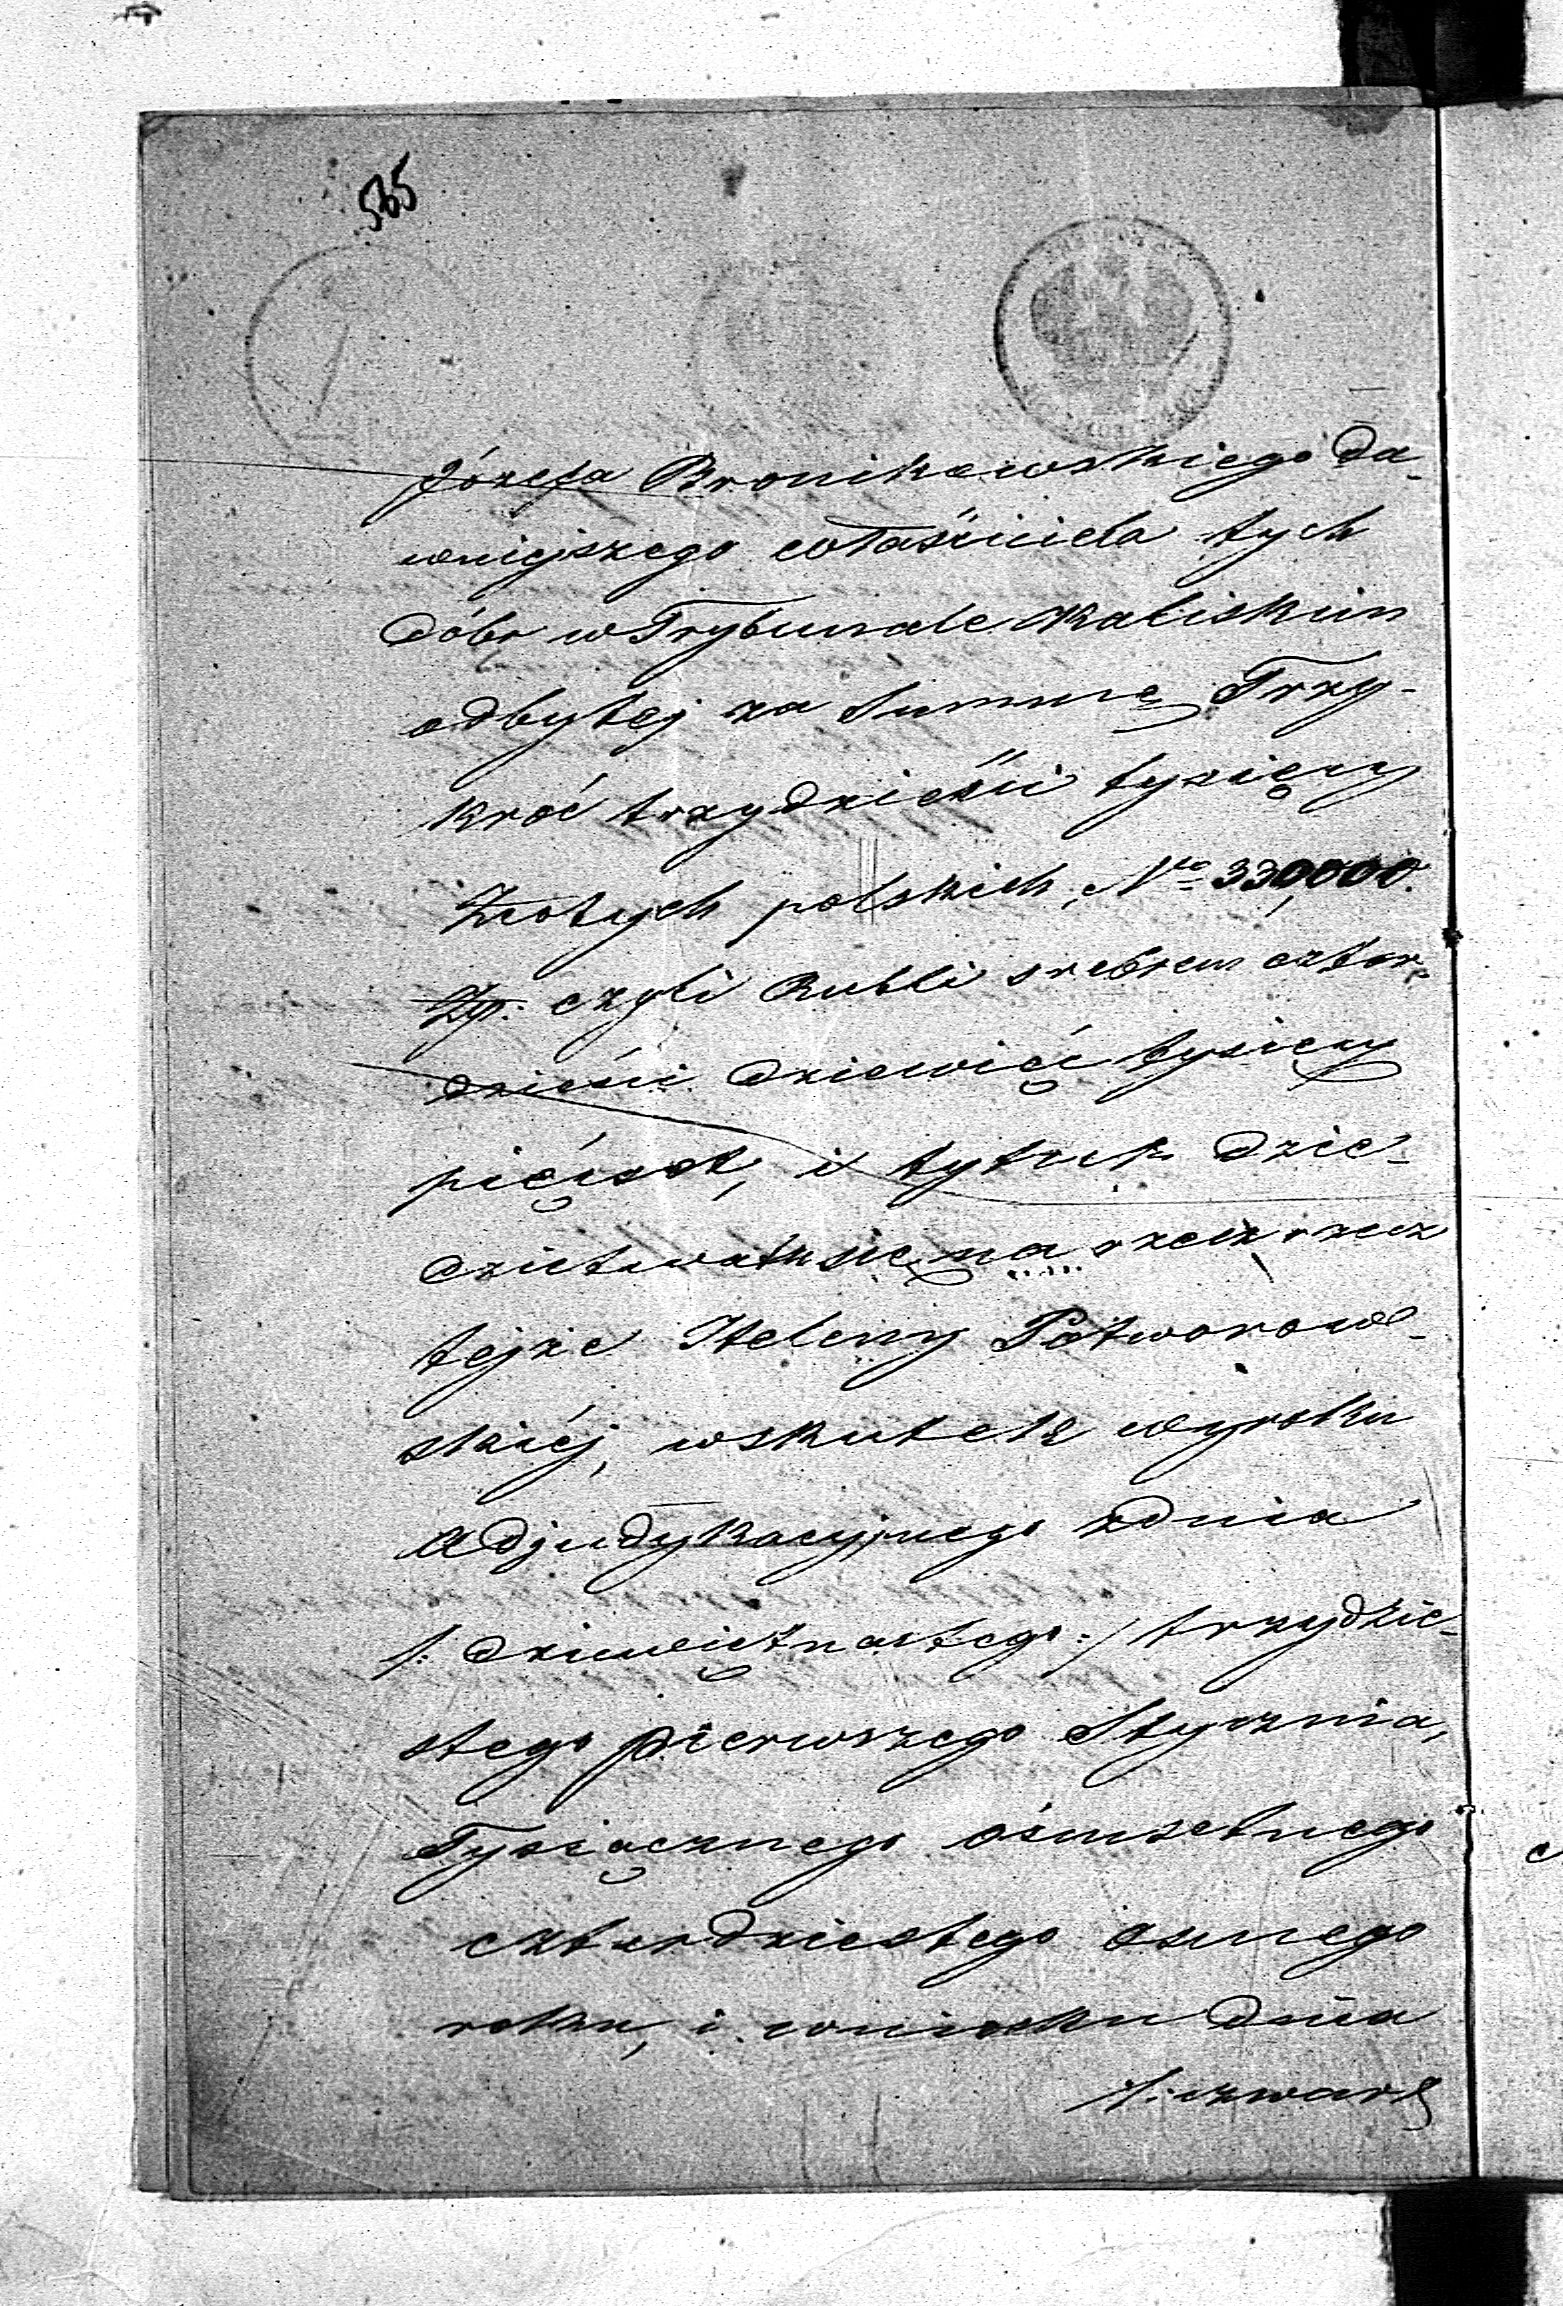 565
Józefa Bronikowskiego da-
wniejszego właściciela tych
dóbr w Trybunale Kaliskim
odbytej za Summę Trzy-
kroć trzydzieści tysięcy
Złotych polskich, No 330,000.
Zp. czyli Rubli srebrem czter-
dzieści dziewięć tysięcy
pięćset, i tytuł dzie-
dzictwa na rzecz rzecz
tejże Heleny Potworow-
skiéj, wskutek wyroku
Adjudykacyjnego z dnia
/: dziewiętnastego :/ trzydzie-
stego pierwszego Stycznia,
Tysiącznego ośmsetnego
czterdziestego osmego
roku, i wniosku dnia
/: czwart